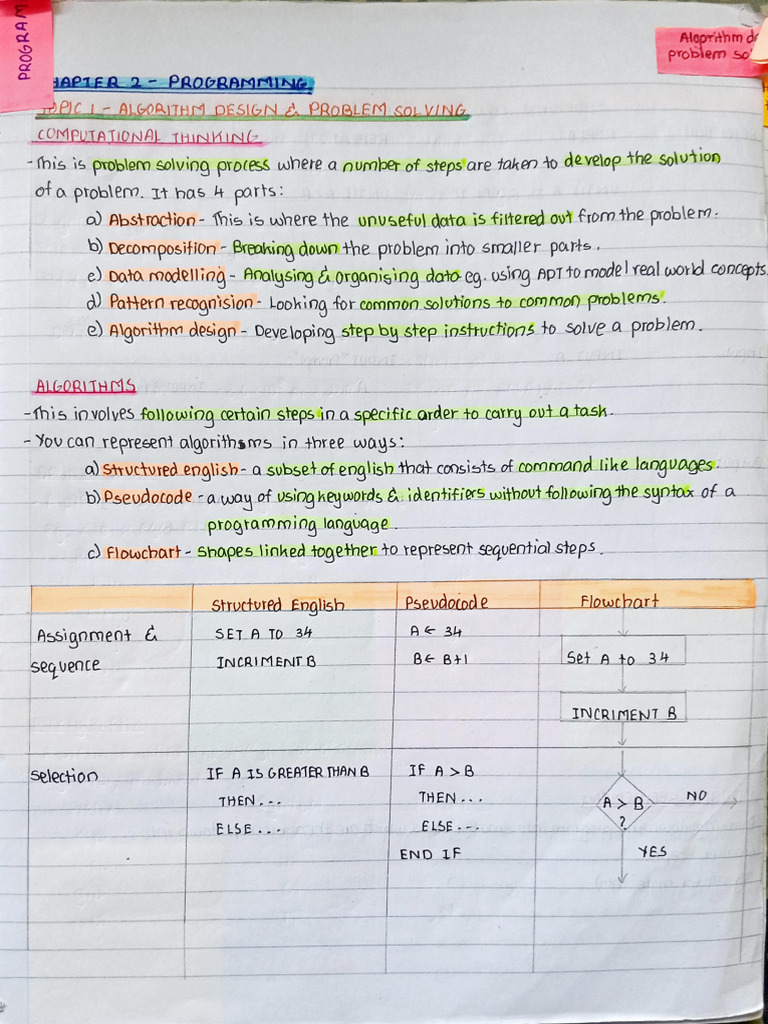 PROGRAM
Algorithm de
problem so
CHAPTER 2 - PROGRAMMING
TOPIC 1 - ALGORITHM DESIGN & PROBLEM SOLVING
COMPUTATIONAL THINKING
- This is problem solving process where a number of steps are taken to develop the solution
of a problem. It has 4 parts:
a) Abstraction - This is where the unuseful data is filtered out from the problem.
b) Decomposition - Breaking down the problem into smaller parts.
c) Data modelling - Analysing & organising data eg. using ADT to model real world concepts.
d) Pattern recognision - Looking for common solutions to common problems.
e) Algorithm design - Developing step by step instructions to solve a problem.
ALGORITHMS
- This involves following certain steps in a specific order to carry out a task.
- You can represent algorithms in three ways:
a) Structured english - a subset of english that consists of command like languages.
b) Pseudocode - a way of using keywords & identifiers without following the syntax of a
programming language.
c) Flowchart - shapes linked together to represent sequential steps.
Structured English Pseudocode Flowchart
Assignment & SET A TO 34 A ← 34
sequence INCRIMENT B B ← B+1 Set A to 34
INCRIMENT B
Selection IF A IS GREATER THAN B IF A > B
THEN... THEN... A > B NO
ELSE... ELSE... ?
END IF YES